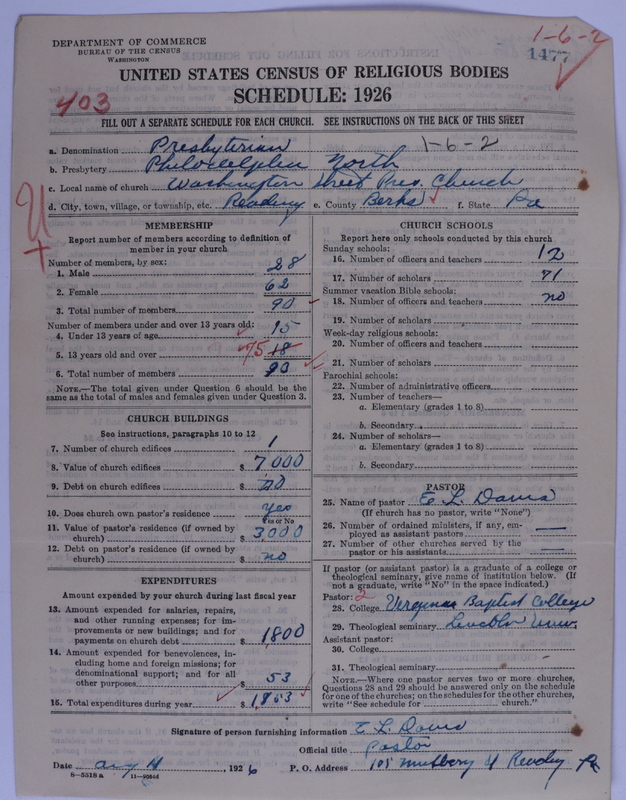 DEPARTMENT OF COMMERCE
BUREAU OF THE CENSUS
WASHINGTON
1-6-2
1477
UNITED STATES CENSUS OF RELIGIOUS BODIES
SCHEDULE: 1926
403
FILL OUT A SEPARATE SCHEDULE FOR EACH CHURCH. SEE INSTRUCTIONS ON THE BACK OF THIS SHEET
a. Denomination Presbyterian 1-6-2
b. Presbytery Philadelphia North
c. Local name of church Washington Street Pres. Church
d. City, town, village, or township, etc. Reading e. County Berks f. State Pa
MEMBERSHIP
Report number of members according to definition of
member in your church
Number of members, by sex:
1. Male 28
2. Female 62
3. Total number of members 90
Number of members under and over 13 years old:
4. Under 13 years of age 15
5. 13 years old and over 75 18
6. Total number of members 90
NOTE.—The total given under Question 6 should be
same as the total of males and females given under Question 3.
CHURCH BUILDINGS
See instructions, paragraphs 10 to 12
7. Number of church edifices 1
8. Value of church edifices $ 7000
9. Debt on church edifices $ no
10. Does church own pastor's residence yes
Yes or No
11. Value of pastor's residence (if owned by
church) $ 3000
12. Debt on pastor's residence (if owned by
church) $ no
EXPENDITURES
Amount expended by your church during last fiscal year
13. Amount expended for salaries, repairs,
and other running expenses; for im-
provements or new buildings; and for
payments on church debt $ 1800
14. Amount expended for benevolences, in-
cluding home and foreign missions; for
denominational support; and for all
other purposes $ 53
15. Total expenditures during year $ 1853
CHURCH SCHOOLS
Report here only schools conducted by this church
Sunday schools:
16. Number of officers and teachers 12
17. Number of scholars 71
Summer vacation Bible schools:
18. Number of officers and teachers no
19. Number of scholars
Week-day religious schools:
20. Number of officers and teachers
21. Number of scholars
Parochial schools:
22. Number of administrative officers
23. Number of teachers—
a. Elementary (grades 1 to 8)
b. Secondary
24. Number of scholars—
a. Elementary (grades 1 to 8)
b. Secondary
PASTOR
25. Name of pastor E L Davis
(If church has no pastor, write "None")
26. Number of ordained ministers, if any, em-
ployed as assistant pastors —
27. Number of other churches served by the
pastor or his assistants —
If pastor (or assistant pastor) is a graduate of a college or
theological seminary, give name of institution below. (If
not a graduate, write "No" in the space indicated.)
Pastor: 2
28. College Virginia Baptist College
29. Theological seminary Lincoln Univ.
Assistant pastor:
30. College
31. Theological seminary
NOTE.—Where one pastor serves two or more churches,
Questions 28 and 29 should be answered only on the schedule
for one of the churches; on the schedules for the other churches,
write "See schedule for church."
Signature of person furnishing information E L Davis
Official title Pastor
Date Aug 4, 1926 P. O. Address 105 Mulberry St Reading Pa
8—5518 a